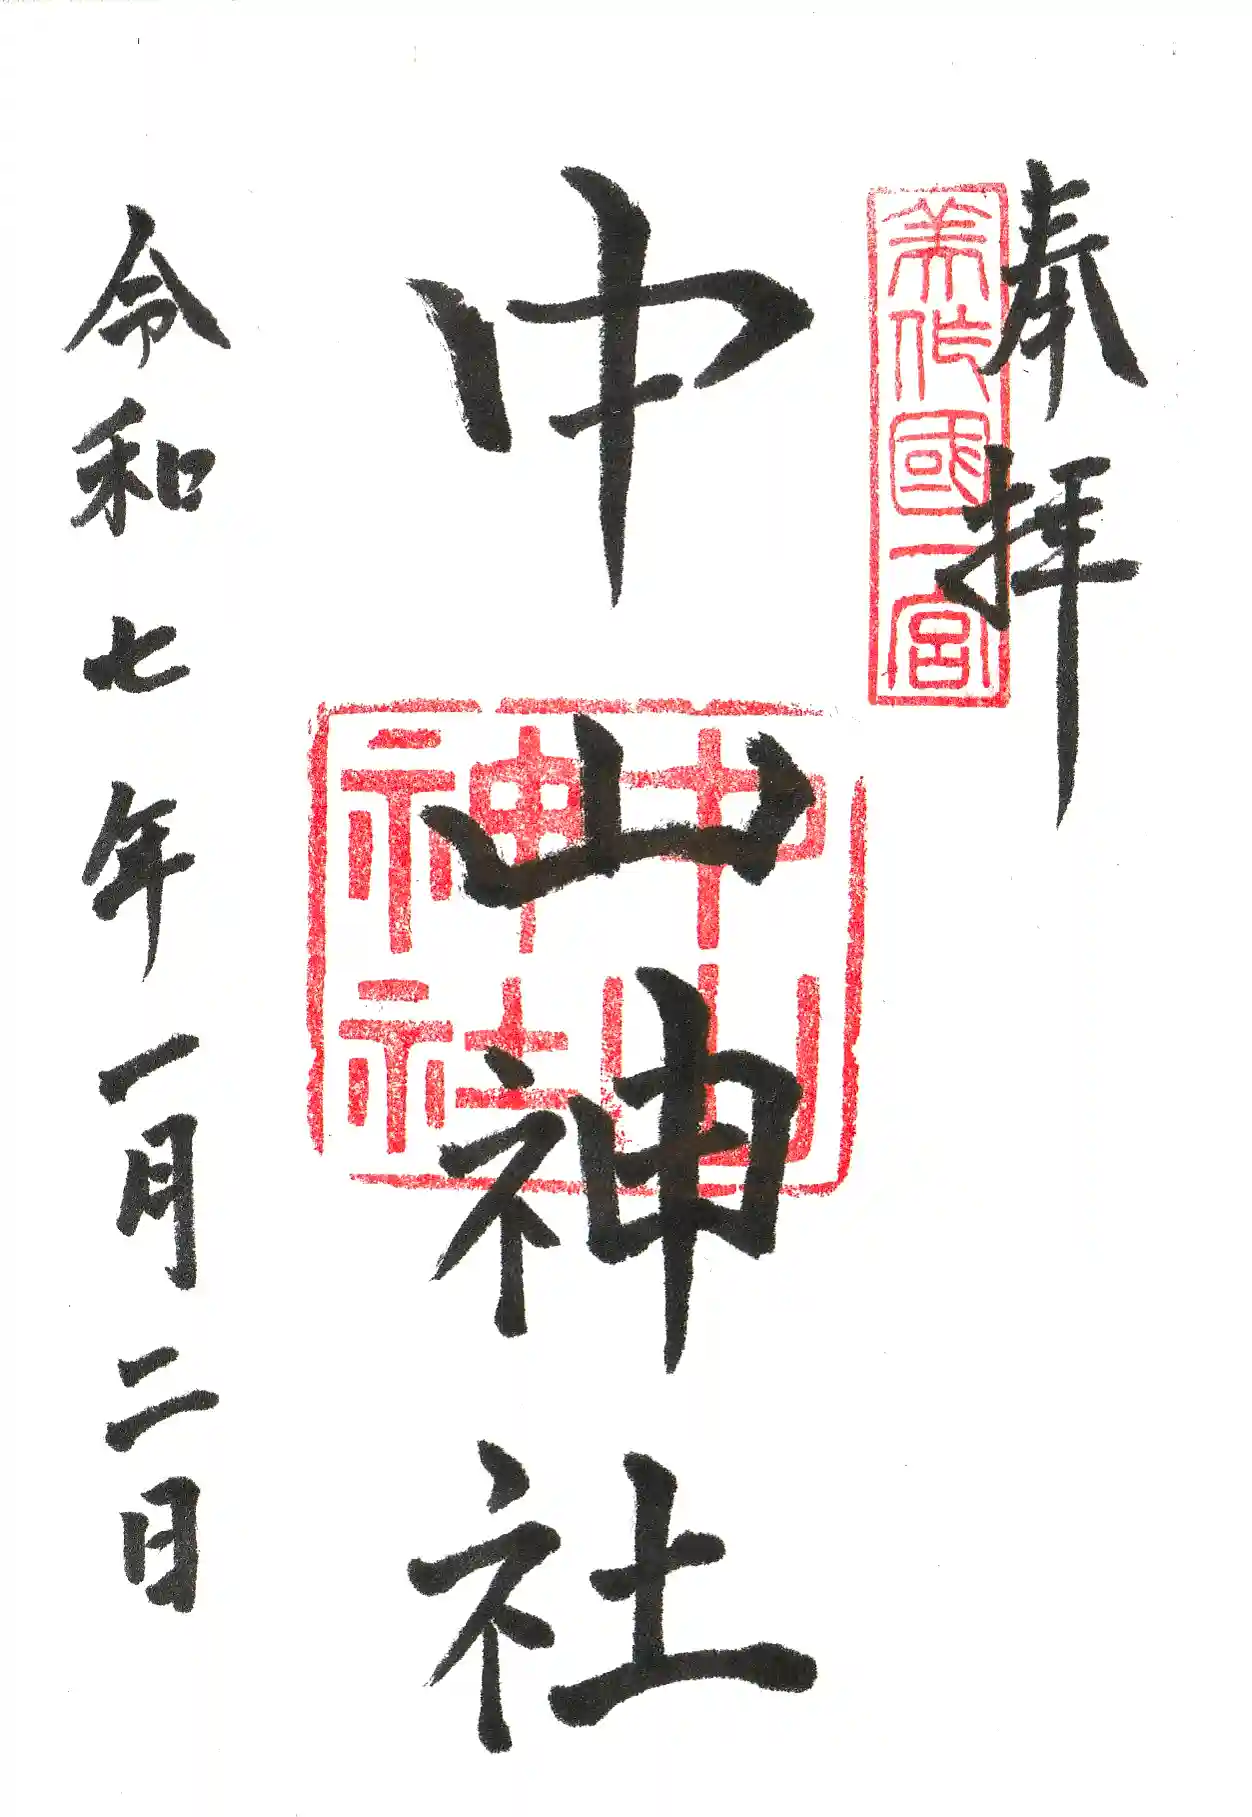 奉拝
美作國一宮
中山神社
中山
神社
令和七年一月二日